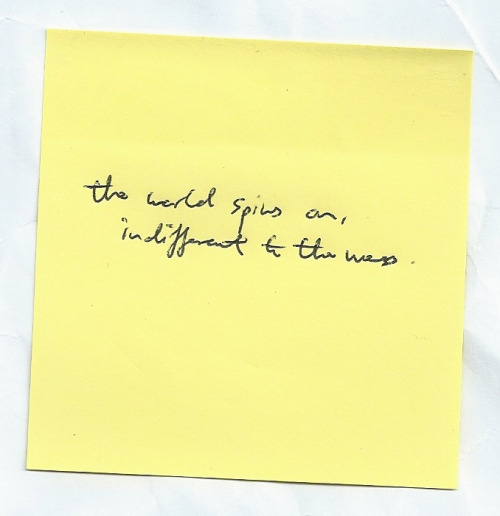 the world spins on,
indifferent to the mess.